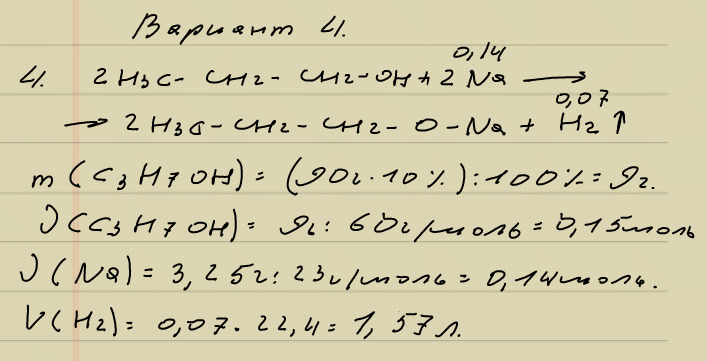 Вариант 4.
0,14
4. 2 H3C - CH2 - CH2 - OH + 2 Na ⟶
0,07
⟶ 2 H3C - CH2 - CH2 - O - Na + H2 ↑
m (C3H7OH) = (90г · 10 %) : 100% = 9г.
ν (C3H7OH) = 9г : 60г/моль = 0,15моль
ν (Na) = 3,25г : 23г/моль = 0,14моль.
V(H2) = 0,07 · 22,4 = 1,57л.